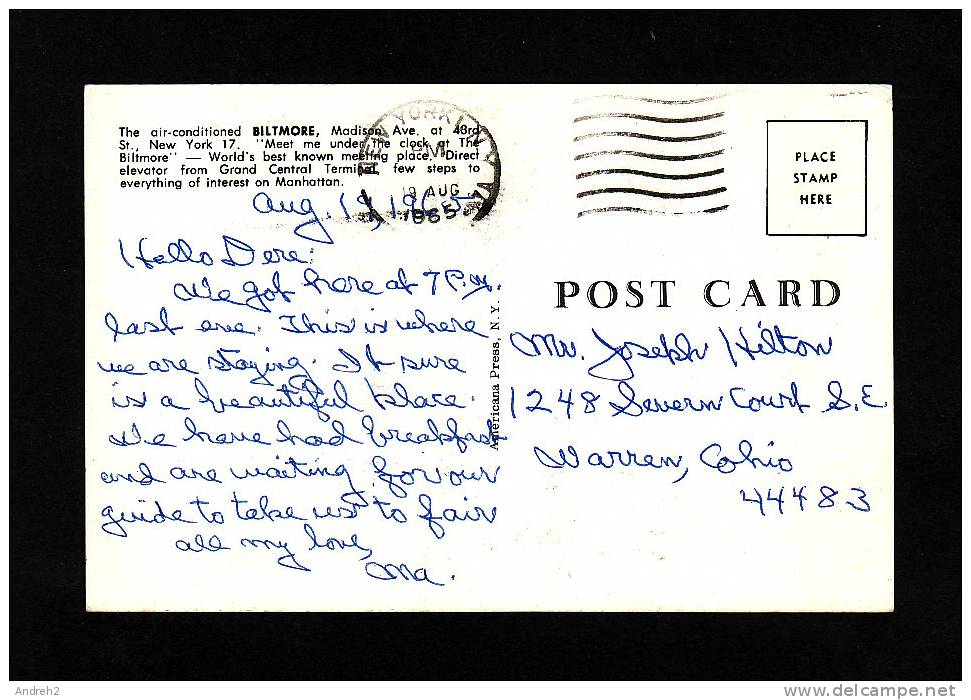 The air-conditioned BILTMORE, Madison Ave. at 43rd
St., New York 17. "Meet me under the clock at The
Biltmore" — World's best known meeting place. Direct
elevator from Grand Central Terminal, few steps to
everything of interest on Manhattan.
NEW YORK, N.Y.
PM
19 AUG
1965
Aug. 19, 1965
Hello Dere:
We got here at 7 P.m.
last eve. This is where
we are staying. It sure
is a beautiful place.
We have had breakfast
and are waiting for our
guide to take us to fair
all my love,
Ma.
Americana Press, N. Y.
PLACE
STAMP
HERE
POST CARD
Mr. Joseph Hilton
1248 Severn Court S.E.
Warren, Ohio
44483
Andreh2
www.delcampe.net